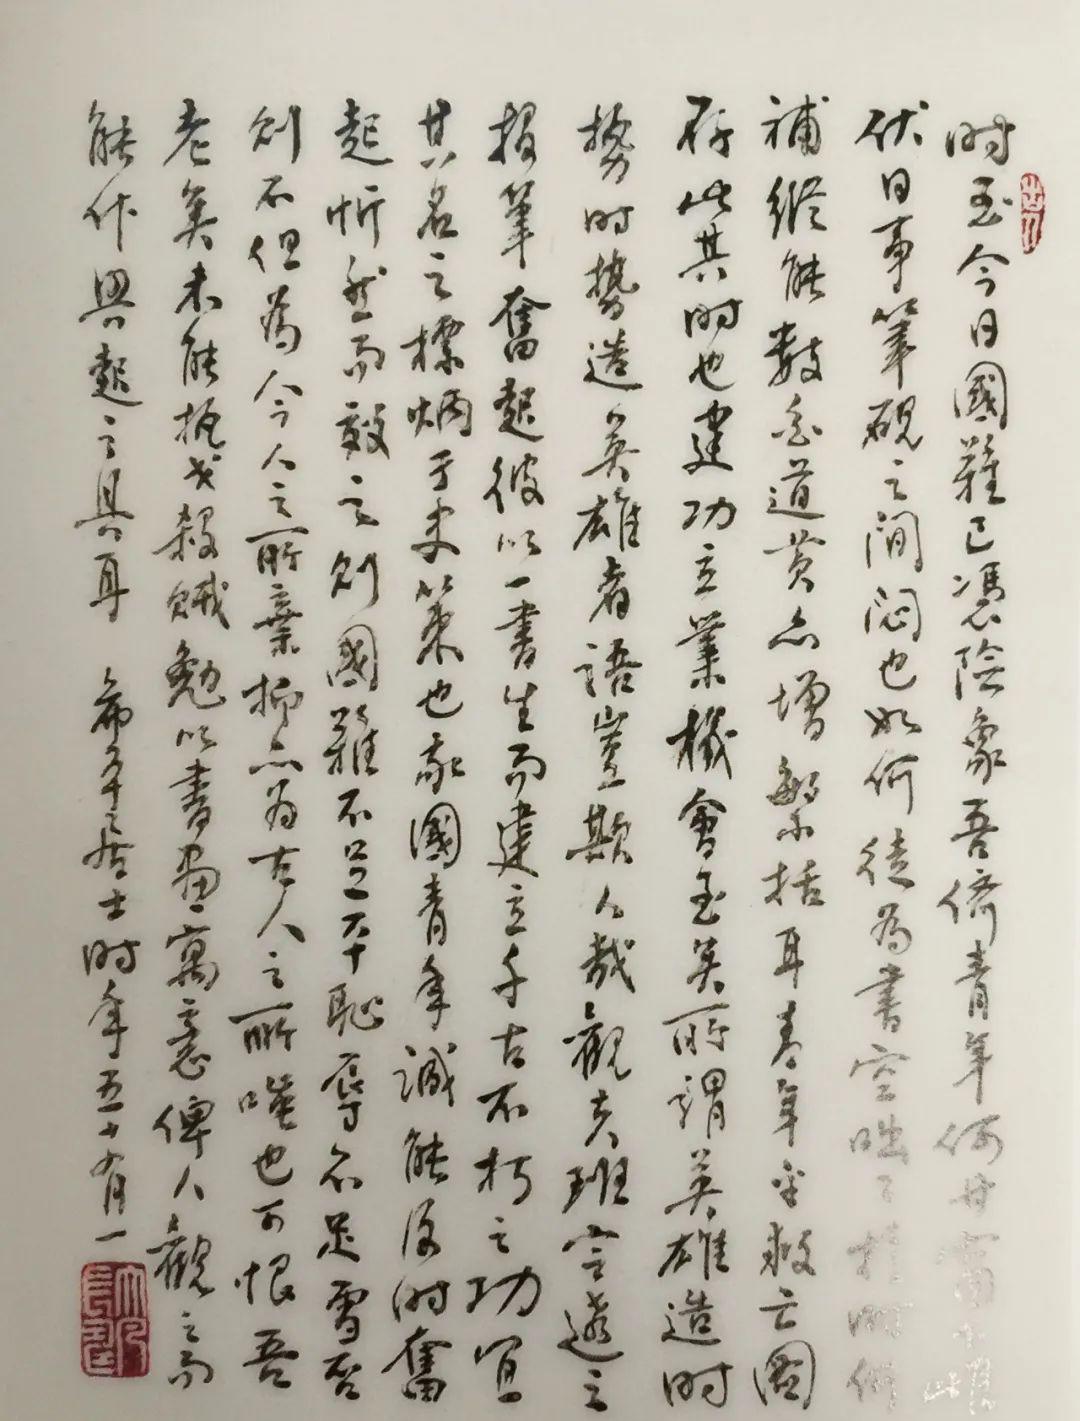 时至今日國難已憑險象吾儕青年何甘窗下雌
伏日事筆硯之間悶也如何徒為書空咄咄于时何
補縱能數白道黃亦增繁括耳青年乎救亡圖
存此其时也建功立業機會至矣所謂英雄造时
勢时勢造英雄者語豈欺人哉觀夫班定遠之
投筆奮起彼以一書生而建立千古不朽之功宜
其名之標炳于史策也我國青年誠能及时奮
起忻然而效之則國難不足平恥辱不足雪否
則不但為今人之所棄抑亦为古人之所嗤也可恨吾
老矣未能执戈殺贼勉以書畫寓意俾人觀之而
能作興起之具耳 居士时年五十有一